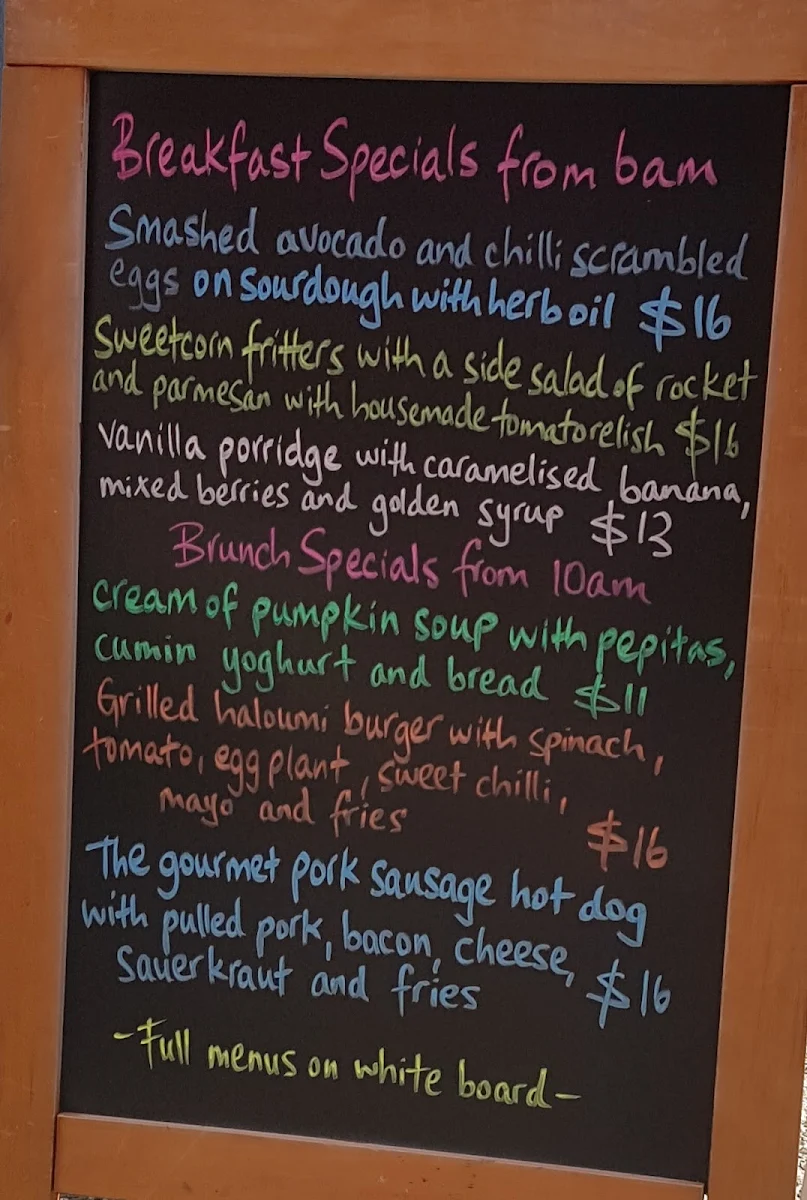 Breakfast Specials from 6am
Smashed avocado and chilli scrambled
eggs on sourdough with herb oil $16
Sweetcorn fritters with a side salad of rocket
and parmesan with housemade tomato relish $16
Vanilla porridge with caramelised banana,
mixed berries and golden syrup $13
Brunch Specials from 10am
cream of pumpkin soup with pepitas,
cumin yoghurt and bread $11
Grilled haloumi burger with spinach,
tomato, egg plant, sweet chilli,
mayo and fries $16
The gourmet pork sausage hot dog
with pulled pork, bacon, cheese,
Sauerkraut and fries $16
-Full menus on white board-